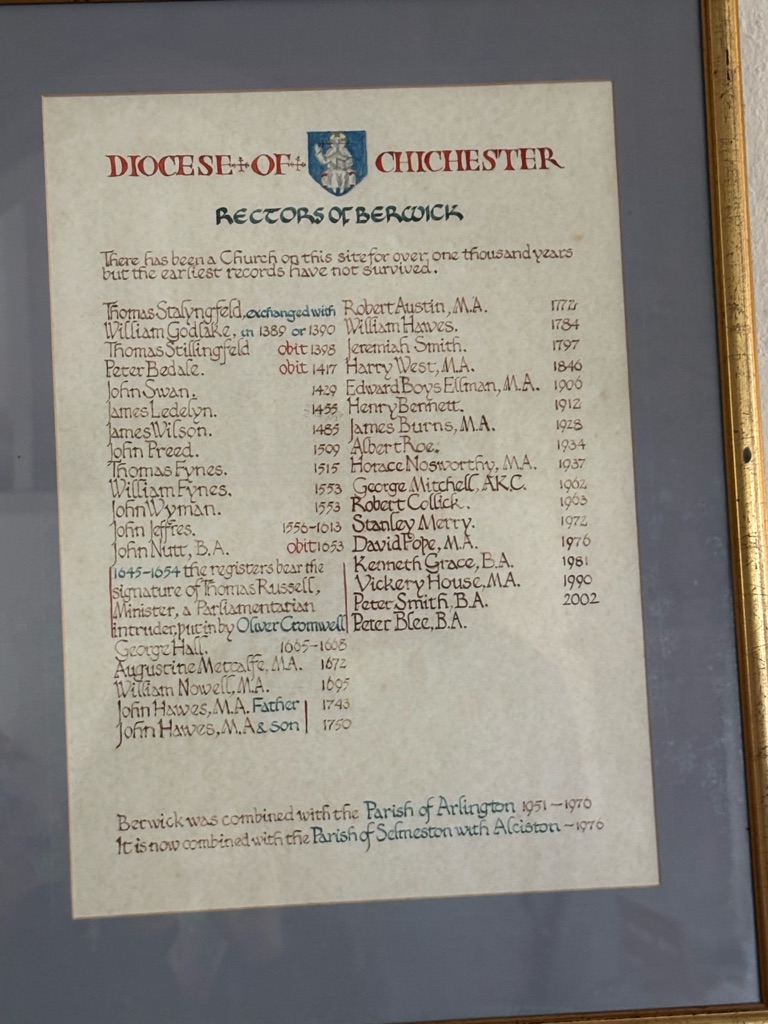 DIOCESE + OF + CHICHESTER
RECTORS OF BERWICK
There has been a Church on this site for over one thousand years
but the earliest records have not survived.
Thomas Stalyngfeld, exchanged with
William Godlake, in 1389 or 1390
Thomas Stillingfeld obit 1398
Peter Bedale. obit 1417
John Swan. 1429
James Ledelyn. 1455
James Wilson. 1485
John Preed. 1509
Thomas Fynes. 1515
William Fynes. 1553
John Wyman. 1553
John Jeffres. 1556-1613
John Nutt, B.A. obit 1653
1645-1654 the registers bear the
signature of Thomas Russell,
Minister, a Parliamentarian
intruder, put in by Oliver Cromwell
George Hall. 1665-1668
Augustine Metcalfe, M.A. 1672
William Nowell, M.A. 1695
John Hawes, M.A. Father 1743
John Hawes, M.A & son 1750
Robert Austin, M.A. 1772
William Hawes. 1784
Jeremiah Smith. 1797
Harry West, M.A. 1846
Edward Boys Ellman, M.A. 1906
Henry Bennett. 1912
James Burns, M.A. 1928
Albert Roe. 1934
Horace Nosworthy, M.A. 1937
George Mitchell, A.K.C. 1962
Robert Collick. 1963
Stanley Merry. 1972
David Pope, M.A. 1976
Kenneth Grace, B.A. 1981
Vickery House, M.A. 1990
Peter Smith, B.A. 2002
Peter Blee, B.A.
Berwick was combined with the Parish of Arlington 1951-1976
It is now combined with the Parish of Selmeston with Alciston ~ 1976